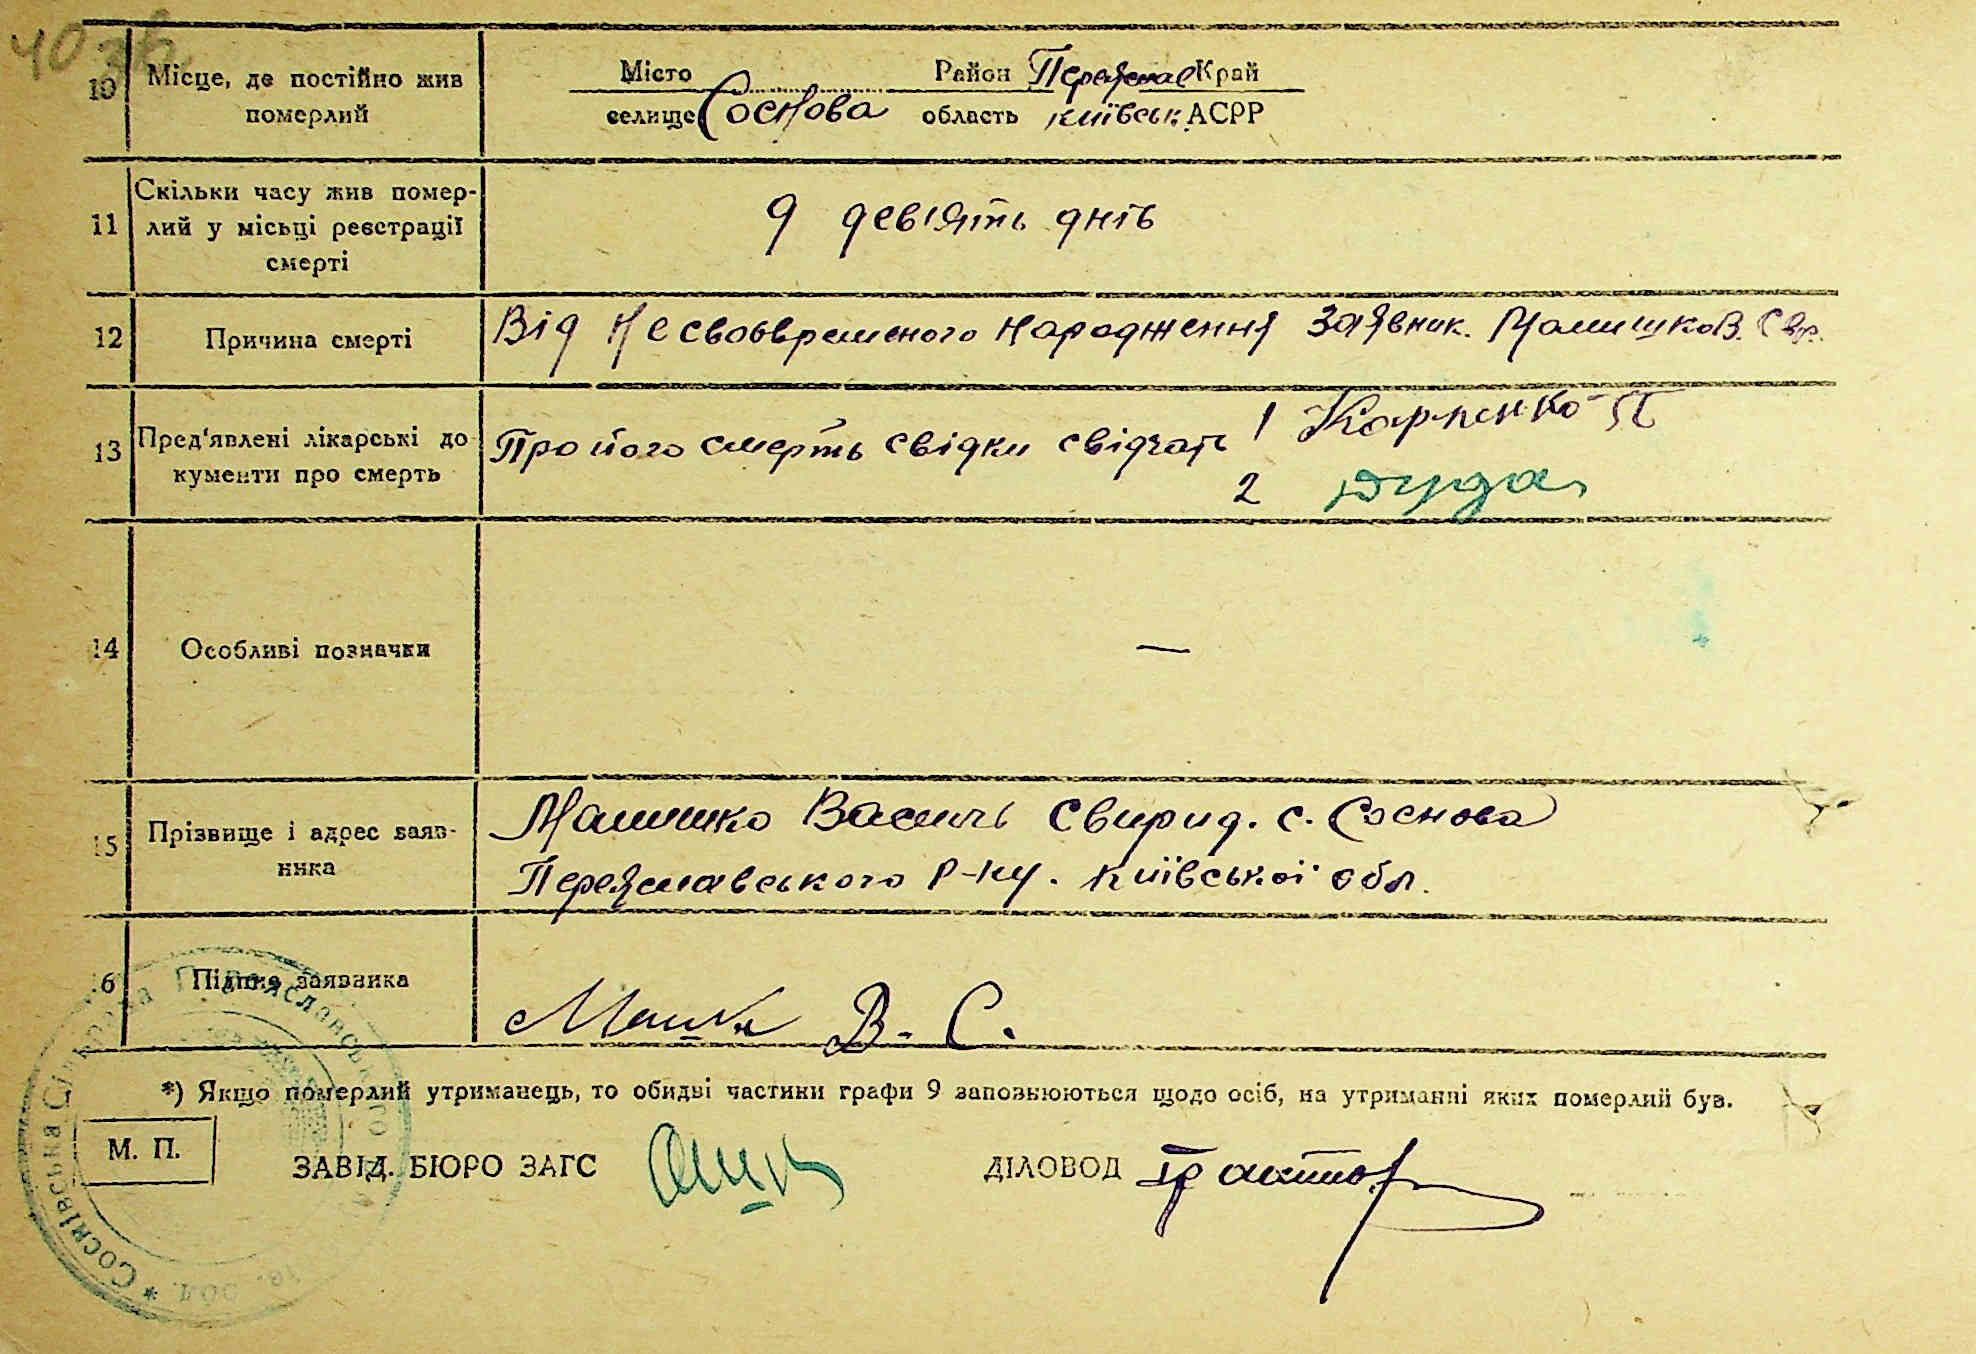 40 зв
10 Місце, де постійно жив померлий
Місто Район Переяслав Край
селище Соснова область київськ. АСРР
11 Скільки часу жив помер-
лий у місьці реєстрації
смерті
9 девʼять днів
12 Причина смерті
Від Несвоєвременого народження Заявник. Малишко В. Свр.
13 Пред'явлені лікарські до
кументи про смерть
Про його смерть свідки свідчать 1 Карпенко П
2 Дуда
14 Особливі позначки
—
15 Прізвище і адрес заяв-
ника
Малишко Василь Свирид. с. Соснова
Переяславського р-ну. київської обл.
16 Підпис заявника
В. С.
*) Якщо померлий утриманець, то обидві частини графи 9 заповнюються щодо осіб, на утриманні яких померлий був.
М. П.
ЗАВІД. БЮРО ЗАГС
ДІЛОВОД
* Соснівська Сільрада Переяславського